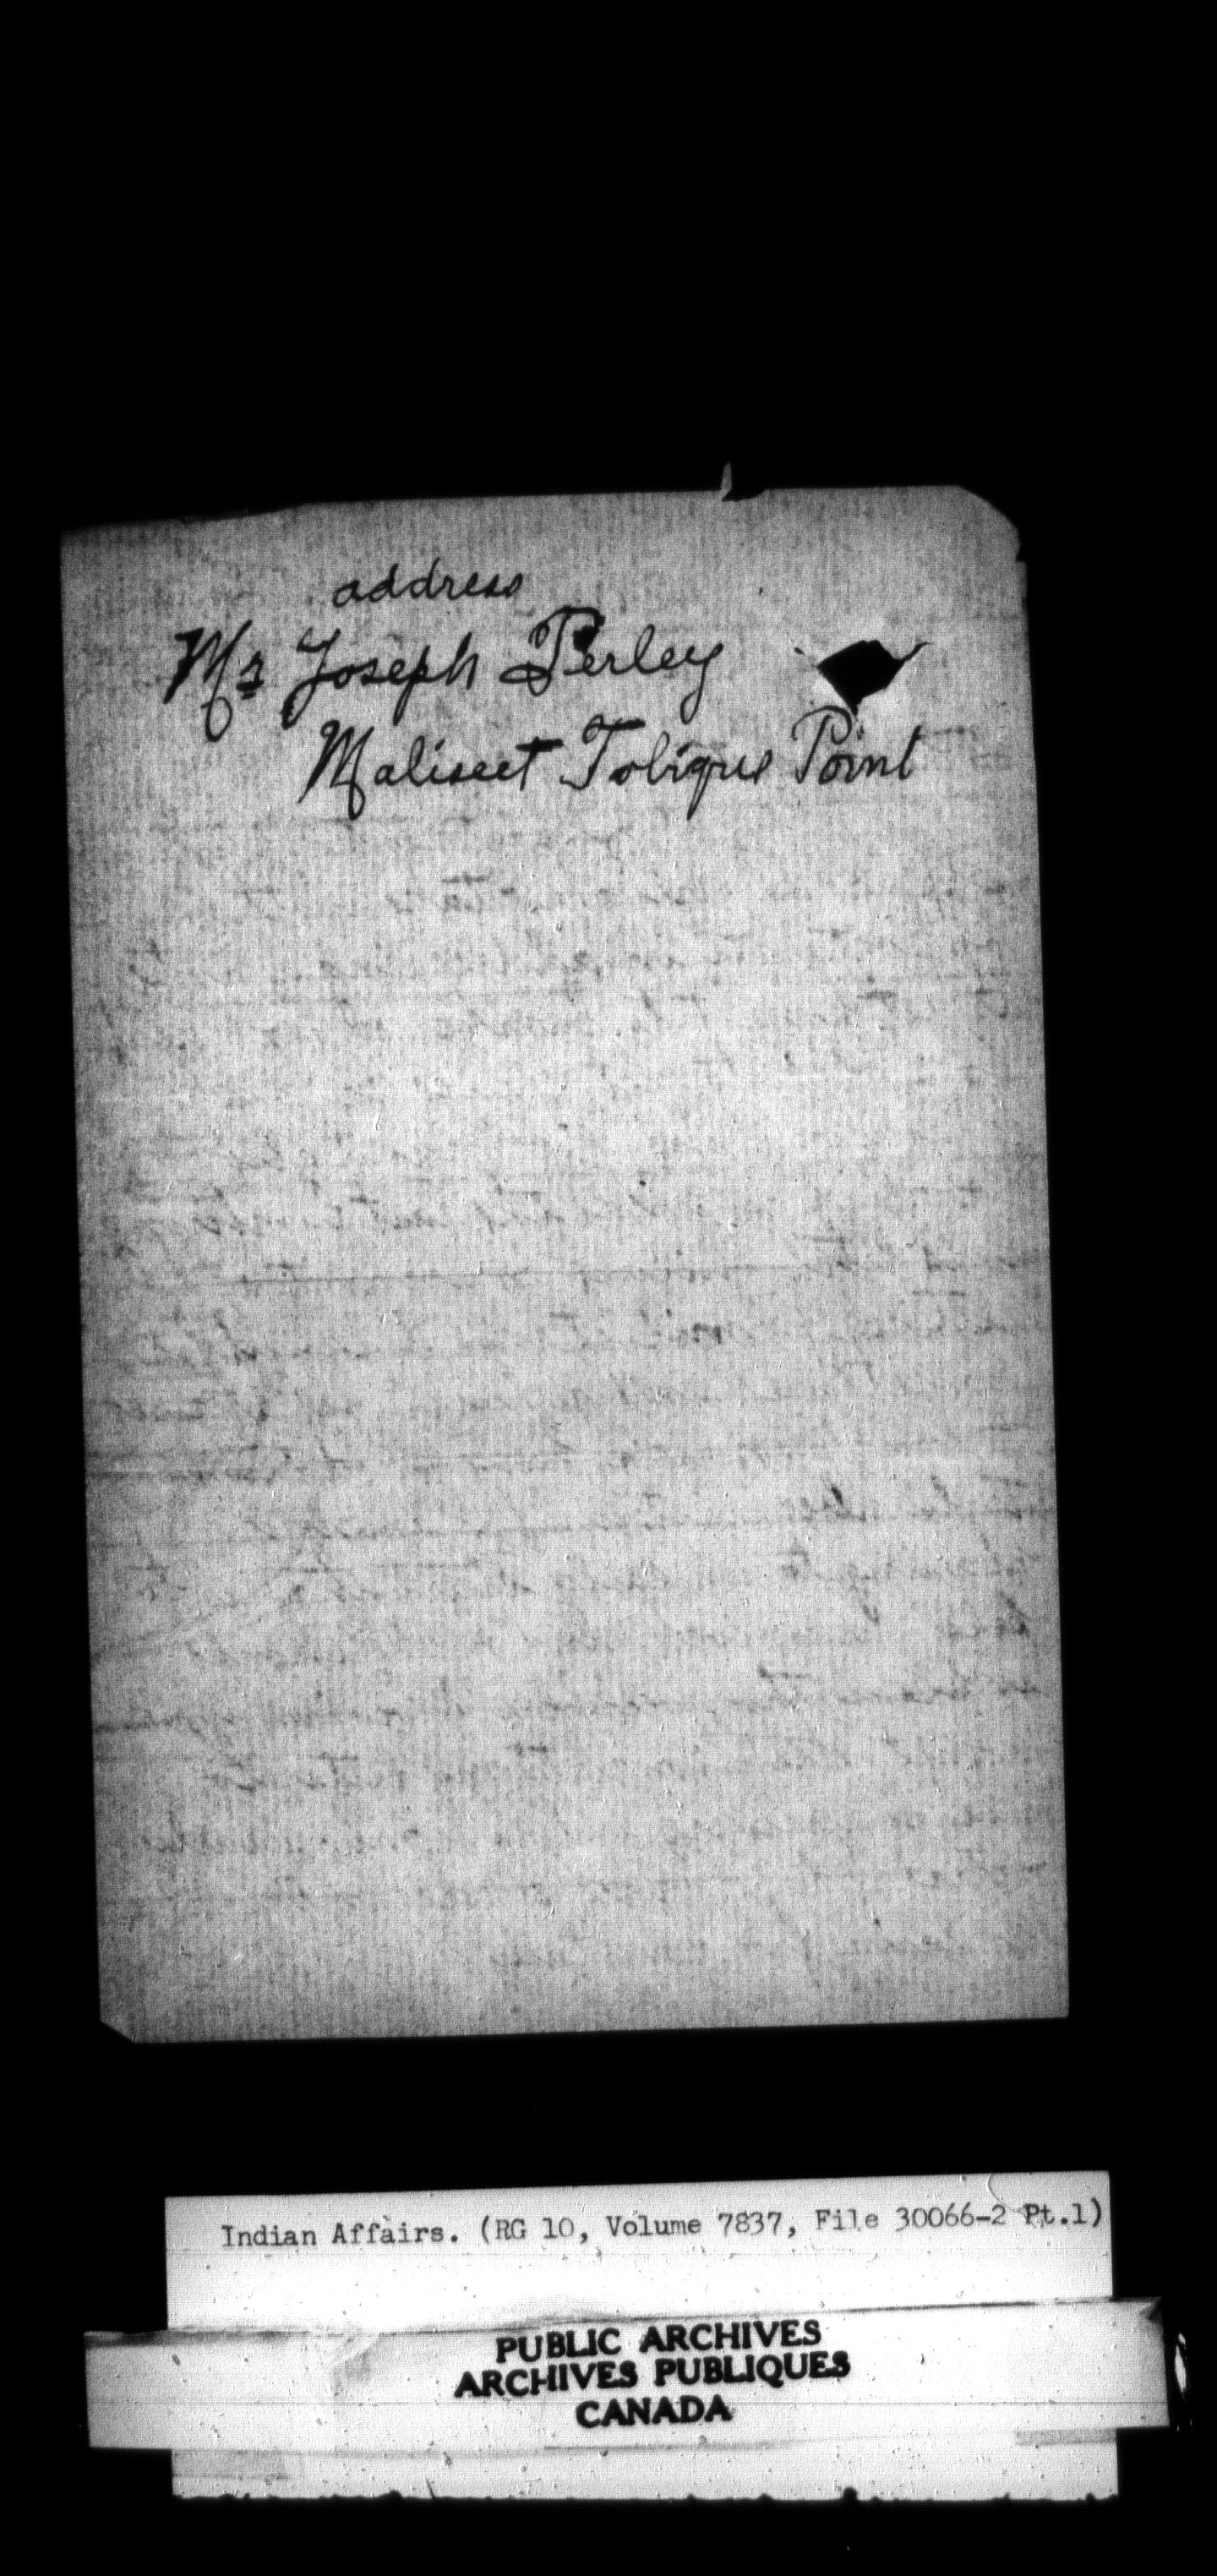 address
Mr Joseph Perley
Maliseet Tobique Point
Indian Affairs. (RG 10, Volume 7837, File 30066-2 Pt.1)
PUBLIC ARCHIVES
ARCHIVES PUBLIQUES
CANADA